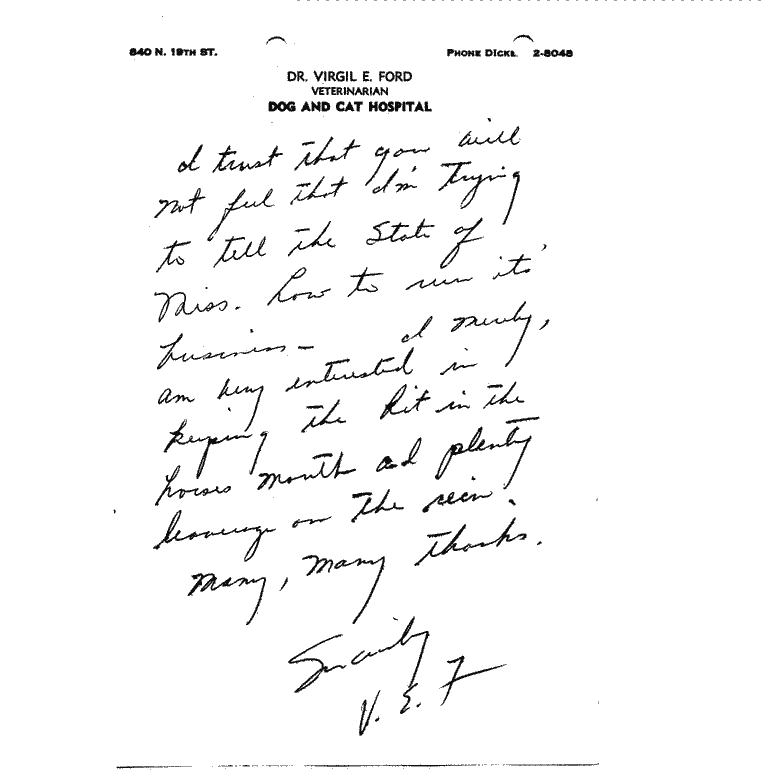 840 N. 19TH ST.
PHONE DICKE. 2-8048
DR. VIRGIL E. FORD
VETERINARIAN
DOG AND CAT HOSPITAL
I trust that you will
not feel that I'm trying
to tell the State of
Miss. how to run its'
business - I merely,
am very interested in
keeping the bit in the
horses mouth and plenty
leaverage on the rein.
Many, many thanks.
Sincerely
V. E. F